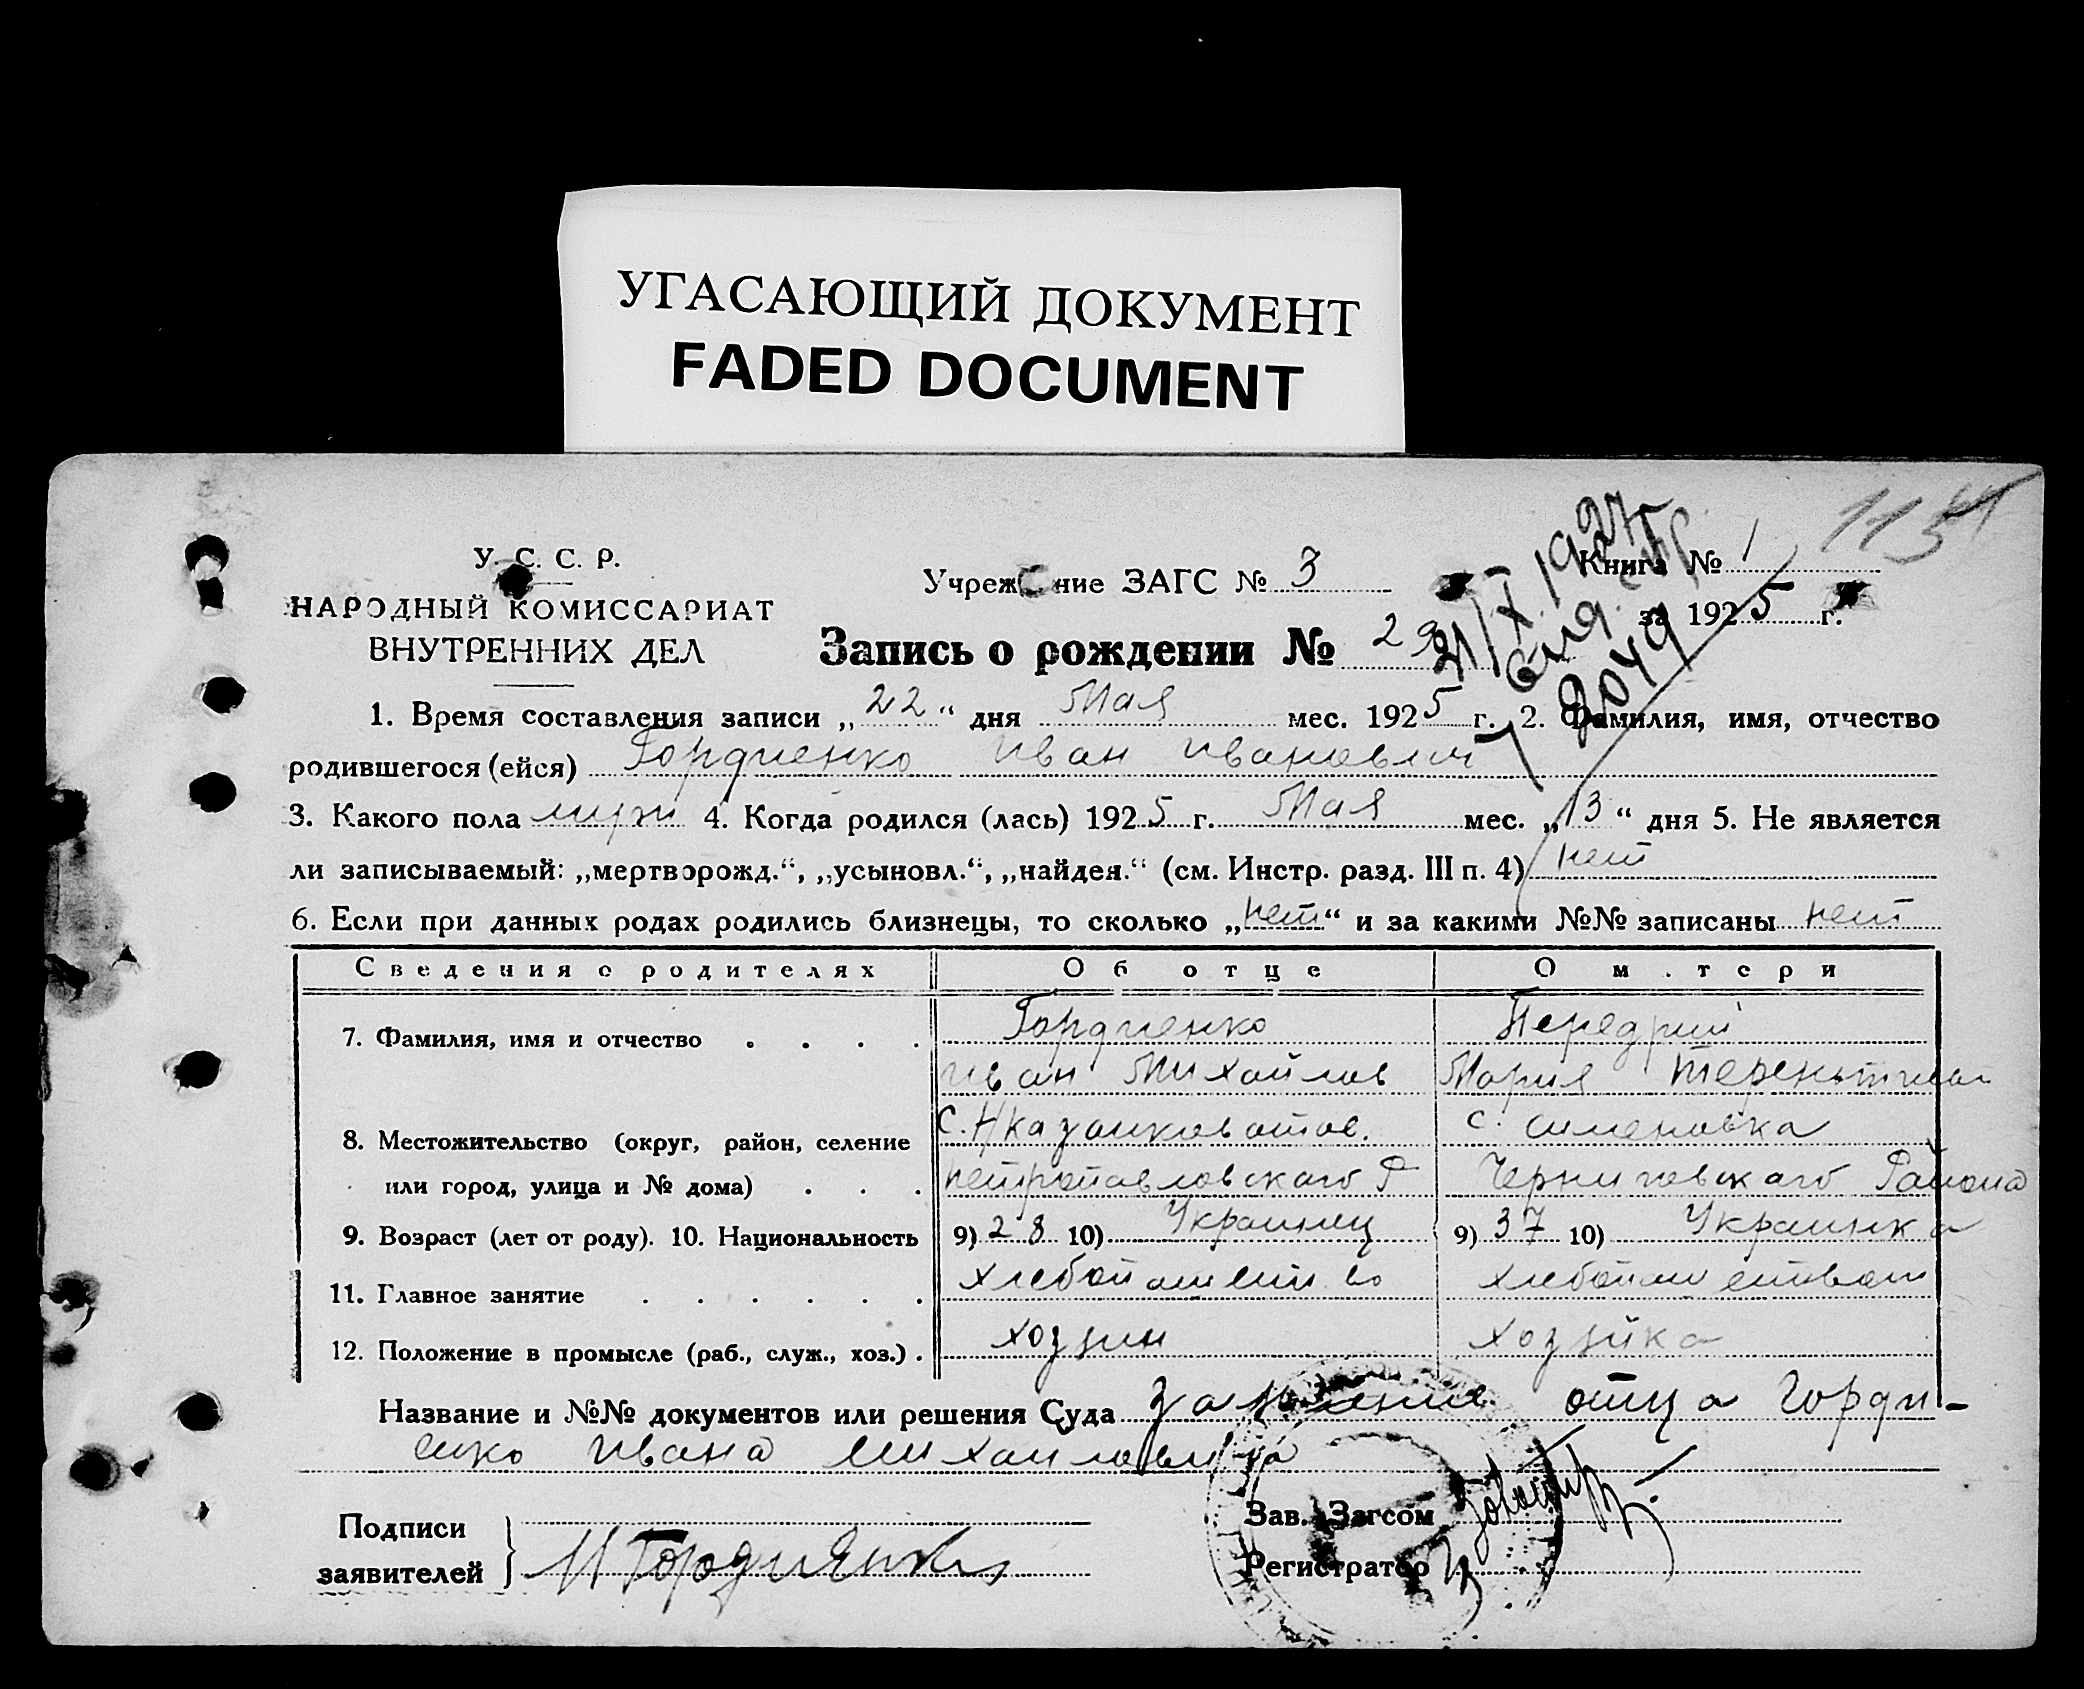 УГАСАЮЩИЙ ДОКУМЕНТ
FADED DOCUMENT
115
У. С. С. Р.
НАРОДНЫЙ КОМИССАРИАТ
ВНУТРЕННИХ ДЕЛ
Учреждение ЗАГС № 3
Книга № 1
за 1925 г.
21/IX.1927
8049
Запись о рождении № 29
1. Время составления записи „22“ дня Мая мес. 1925 г. 2. Фамилия, имя, отчество
родившегося (ейся) Гордиенко Иван Иванович
3. Какого пола муж 4. Когда родился (лась) 1925 г. Мая мес. „13“ дня 5. Не является
ли записываемый: „мертворожд.“, „усыновл.“, „найден.“ (см. Инстр. разд. III п. 4) нет
6. Если при данных родах родились близнецы, то сколько „нет“ и за какими №№ записаны нет
Сведения о родителях Об отце О матери
7. Фамилия, имя и отчество . . . . Гордиенко Передрий
Иван Михайлов Мария Терентиева
8. Местожительство (округ, район, селение С. Н/Казанковатов. с. Сименовка
или город, улица и № дома) . . . петропавловского Р Черниговскаго Района
9. Возраст (лет от роду). 10. Национальность 9) 28 10) Украинец 9) 37 10) Украинка
11. Главное занятие . . . . . . хлебопашество хлебопашеством
12. Положение в промысле (раб., служ., хоз.) . хозяин хозяйка
Название и №№ документов или решения Суда отца Горди-
енко Ивана Михаиловича
Подписи
заявителей И Гордиенко
Зав. Загсом
Регистратор